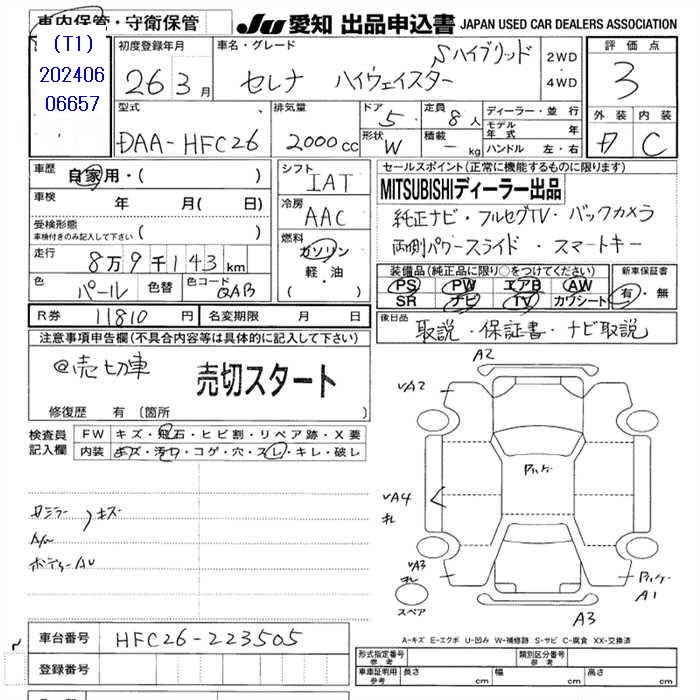 車内保管・守衛保管
JU 愛知 出品申込書 JAPAN USED CAR DEALERS ASSOCIATION
(T1)
202406
06657
初度登録年月
26 3月
車名・グレード
セレナ ハイウェイスター Sハイブリッド
2WD
4WD
評価点
3
外装 内装
C
型式
DAA-HFC26
排気量
2000cc
ドア 5
形状 W
定員 8人
積載 - kg
ディーラー・並行
モデル年式 年
ハンドル 左・右
車歴 自家用・( )
車検 年 月( 日)
受検形態
車検付きのみ記入して下さい ( )
走行 8万9千143km
色 パール 色替 色コード QAB
R券 11810円 名変期限 月 日
シフト
IAT
冷房
AAC
燃料
ガソリン
軽・油
( )
セールスポイント(正常に機能するものに限ります)
MITSUBISHIディーラー出品
純正ナビ・フルセグTV・バックカメラ
両側パワースライド・スマートキー
装備品(純正品に限り○をつけてください)
PS PW エアB AW
SR ナビ TV カワシート
新車保証書
有・無
後日品
取説・保証書・ナビ取説
注意事項申告欄(不具合内容等は具体的に記入して下さい)
@売切車
売切スタート
修復歴 有 (箇所 )
検査員
記入欄
FW キズ・飛石・ヒビ割・リペア跡・X要
内装 キズ・汚れ・コゲ・穴・スレ・キレ・破レ
キズ
A2
VA2
VA4
VA3
スペア
A1
A3
A-キズ E-エクボ U-凹み W-補修跡 S-サビ C-腐食 XX-交換済
車台番号 HFC26-223505
登録番号
形式指定番号
参考
類別区分番号
参考
車庫証明用
参考
長さ cm 幅 cm 高さ cm